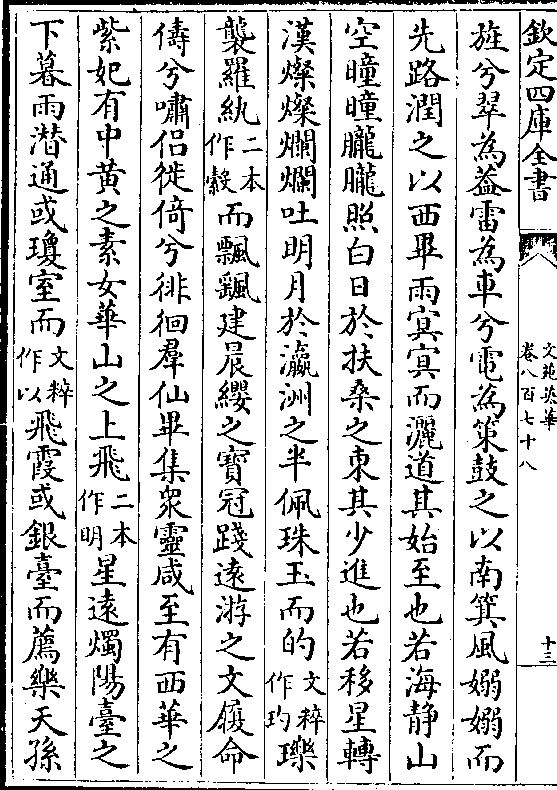 欽定四庫全書
文苑英華
卷八百七十八
十三
旌兮翠為葢雷為車兮電為策鼓之以南箕風嫋嫋而
先路潤之以西畢雨寞寞而灑道其始至也若海静山
空曈曈朧朧照白日於扶桑之東其少進也若移星轉
漢燦燦爛爛吐明月於瀛洲之半佩珠玉而的文粹作玓瓅
襲羅紈二本作縠而飄颻建晨纓之寶冠踐遠游之文履命
儔兮嘯侣徙倚兮徘徊羣仙畢集衆靈咸至有西華之
紫妃有中黄之素女華山之上飛二本作明星遠燭陽臺之
下暮雨潜通或瓊室而文粹作以飛霞或銀臺而薦樂天孫